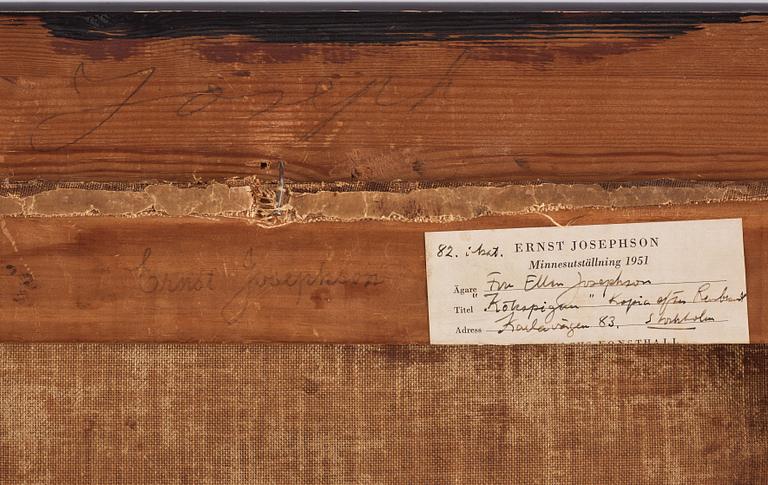 Joseph
Ernst Josephson
82. i kat. ERNST JOSEPHSON
Minnesutställning 1951
Ägare Fru Ellen Josephson
Titel "Kökspigan" Kopia efter Rembrandt
Adress Karlavägen 83, Stockholm
KONSTHALL